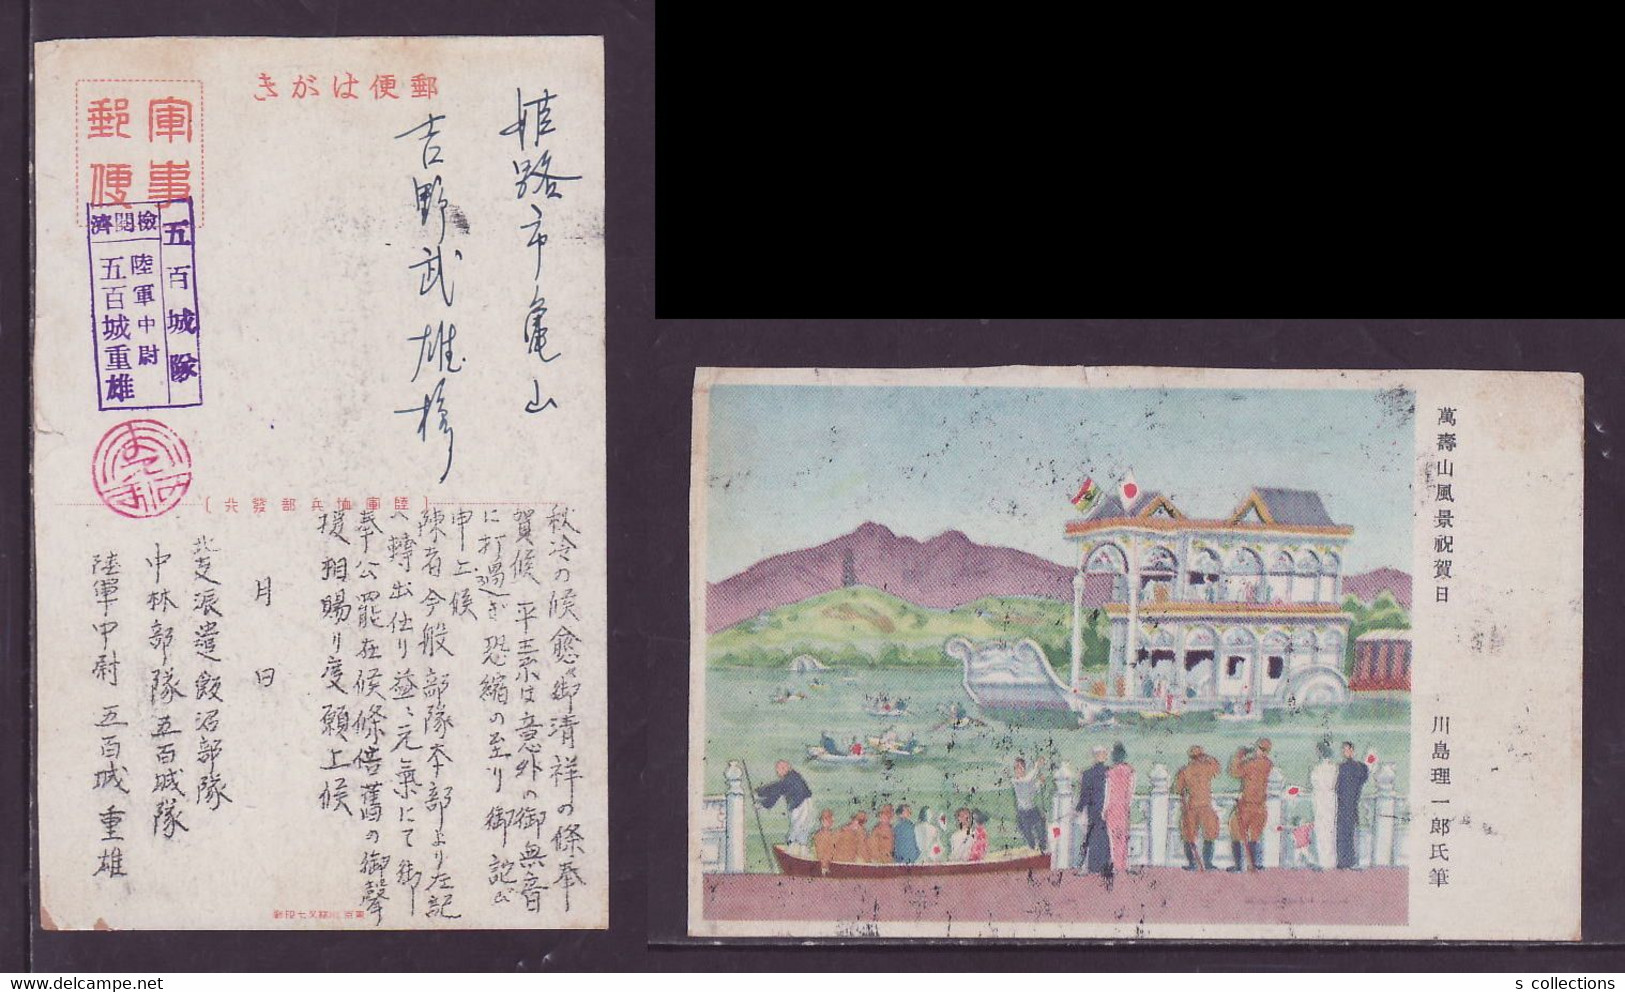 郵便はがき
軍事
郵便
姫路市亀山
吉野武雄様
五百城隊
檢閲濟
陸軍中尉
五百城重雄
陸軍恤兵部發行
秋冷の候愈々御清祥の條奉
賀候 平素は意外の御無音
に打過ぎ恐縮の至り御詫び
申上候
陳者今般部隊本部より左記
へ轉出仕り益々元氣にて御
奉公罷在候條倍舊の御聲
援相賜り度願上候
月 日
北支派遣飯沼部隊
中林部隊五百城隊
陸軍中尉 五百城重雄
萬壽山風景祝賀日 川島理一郎氏筆
s collections